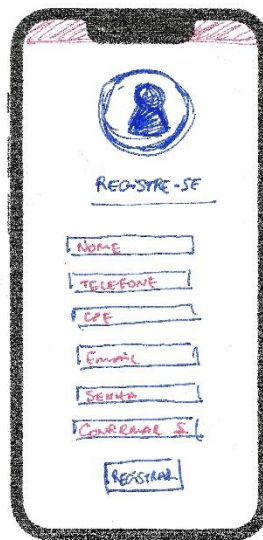 REGISTRE-SE
NOME
TELEFONE
CPF
EMAIL
SENHA
CONFIRMAR S.
REGISTRAR